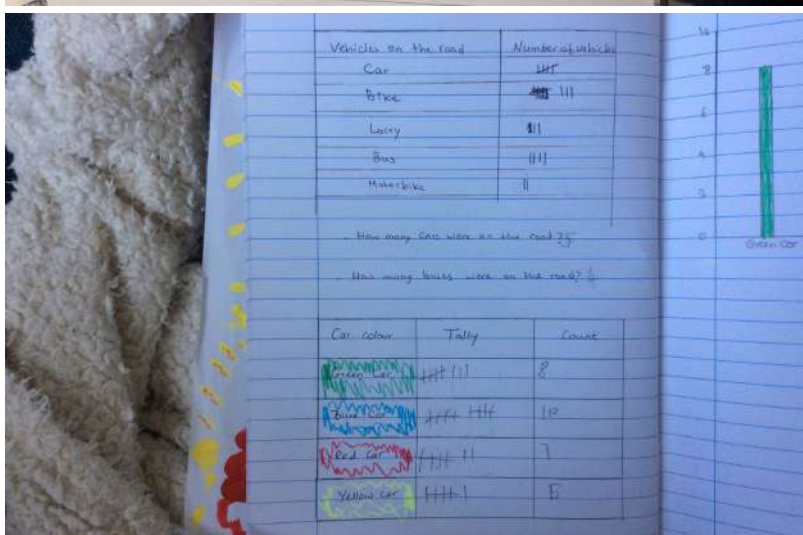 Vehicles on the road Number of vehicles
Car
Bike
Lorry
Bus
Motorbike
How many cars were on the road? 5
How many buses were on the road?
Car colour Tally Count
Green Car 8
Blue Car 10
Red Car 7
Yellow car
10
8
6
4
2
0
Green Car